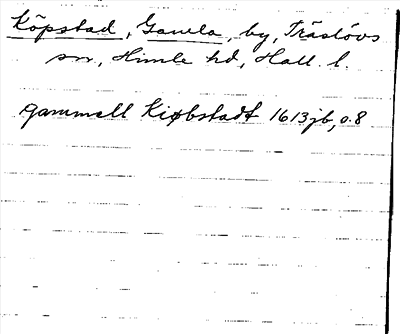 Köpstad, Gamla, by, Träslövs
sn, Himle hd, Hall. l.
gammell Kiøbstadt 1613 jb, o. 8